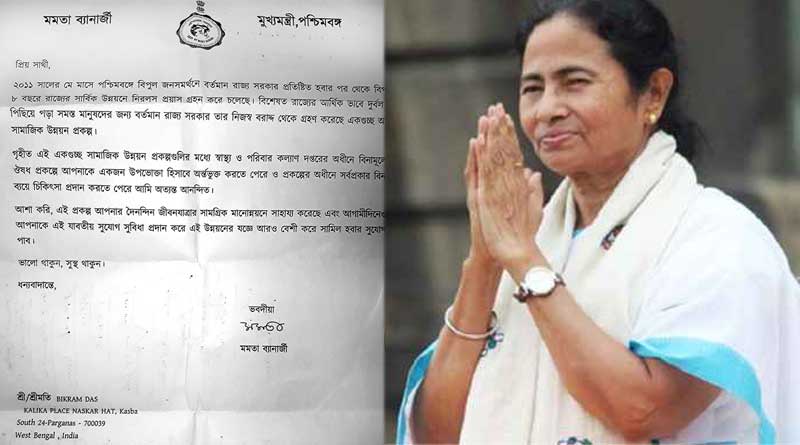 মমতা ব্যানার্জী
মুখ্যমন্ত্রী,পশ্চিমবঙ্গ
প্রিয় সাথী,
২০১১ সালের মে মাসে পশ্চিমবঙ্গে বিপুল জনসমর্থনে বর্তমান রাজ্য সরকার প্রতিষ্ঠিত হবার পর থেকে
৮ বছরে রাজ্যের সার্বিক উন্নয়নে নিরলস প্রয়াস গ্রহন করে চলেছে। বিশেষত রাজ্যের আর্থিক ভাবে
পিছিয়ে পড়া সমস্ত মানুষদের জন্য বর্তমান রাজ্য সরকার তার নিজস্ব বরাদ্দ থেকে গ্রহণ করেছে একগুচ্ছ
সামাজিক উন্নয়ন প্রকল্প।
গৃহীত এই একগুচ্ছ সামাজিক উন্নয়ন প্রকল্পগুলির মধ্যে স্বাস্থ্য ও পরিবার কল্যাণ দপ্তরের অধীনে
ঔষধ প্রকল্পে আপনাকে একজন উপভোক্তা হিসাবে অর্ন্তভুক্ত করতে পেরে ও প্রকল্পের অধীনে সর্বপ্রকার
ব্যয়ে চিকিৎসা প্রদান করতে পেরে আমি অত্যন্ত আনন্দিত।
আশা করি, এই প্রকল্প আপনার দৈনন্দিন জীবনযাত্রার সামগ্রিক মানোন্নয়নে সাহায্য করেছে এবং
আপনাকে এই যাবতীয় সুযোগ সুবিধা প্রদান করে এই উন্নয়নের যজ্ঞে আরও বেশী করে সামিল হবার সুযোগ
পাব।
ভালো থাকুন, সুস্থ থাকুন।
ধন্যবাদান্তে,
ভবদীয়া
মমতা
মমতা ব্যানার্জী
শ্রী/শ্রীমতি BIKRAM DAS
KALIKA PLACE NASKAR HAT, Kasba
South 24-Parganas - 700039
West Bengal , India